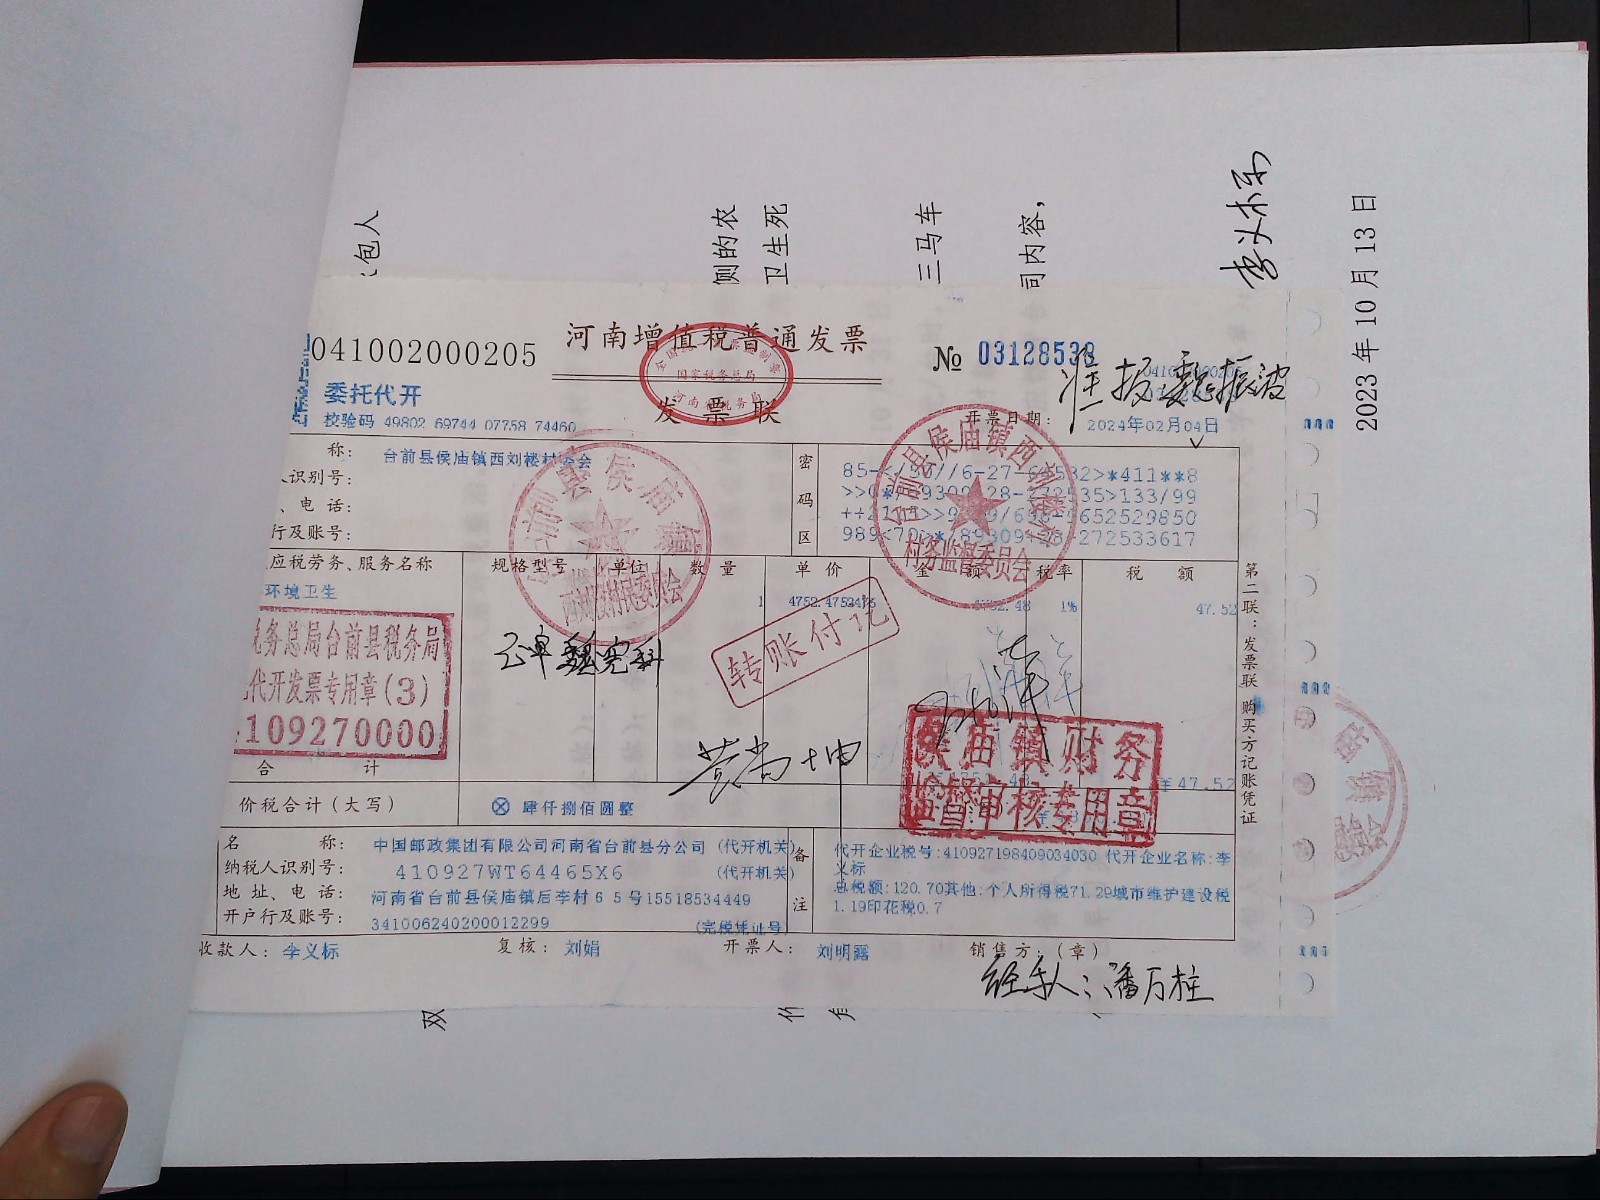 包人
侧的农
卫生死
三马车
司内容，
2023年10月13日
041002000205
河南增值税普通发票
№ 03128538
国家税务总局
委托代开
发票联
校验码 49802 69744 07758 74460
开票日期：
2024年02月04日
准报
称：
台前县侯庙镇西刘楼村委会
识别号：
、电话：
行及账号：
密码区
989<70>*/89309+28-272533617
台前县侯庙镇西刘楼村
村务监督委员会
县侯庙镇
西刘楼村民委员会
应税劳务、服务名称
规格型号
单位
数量
单价
金额
税率
税额
环境卫生
1
1%
47.52
转账付讫
税务总局台前县税务局
代开发票专用章(3)
109270000
合计
¥47.52
侯庙镇财务
监督审核专用章
价税合计（大写）
肆仟捌佰圆整
名称：
中国邮政集团有限公司河南省台前县分公司（代开机关）
纳税人识别号：
410927WT64465X6
（代开机关）
地址、电话：
河南省台前县侯庙镇后李村65号15518534449
开户行及账号：
341006240200012299
（完税凭证号）
备注
代开企业税号：410927198409034030 代开企业名称：李
义标
总税额：120.70其他：个人所得税71.29城市维护建设税
1.19印花税0.7
收款人：李义标
复核：刘娟
开票人：刘明露
销售方：（章）
经手人：潘万柱
第二联：发票联 购买方记账凭证
双